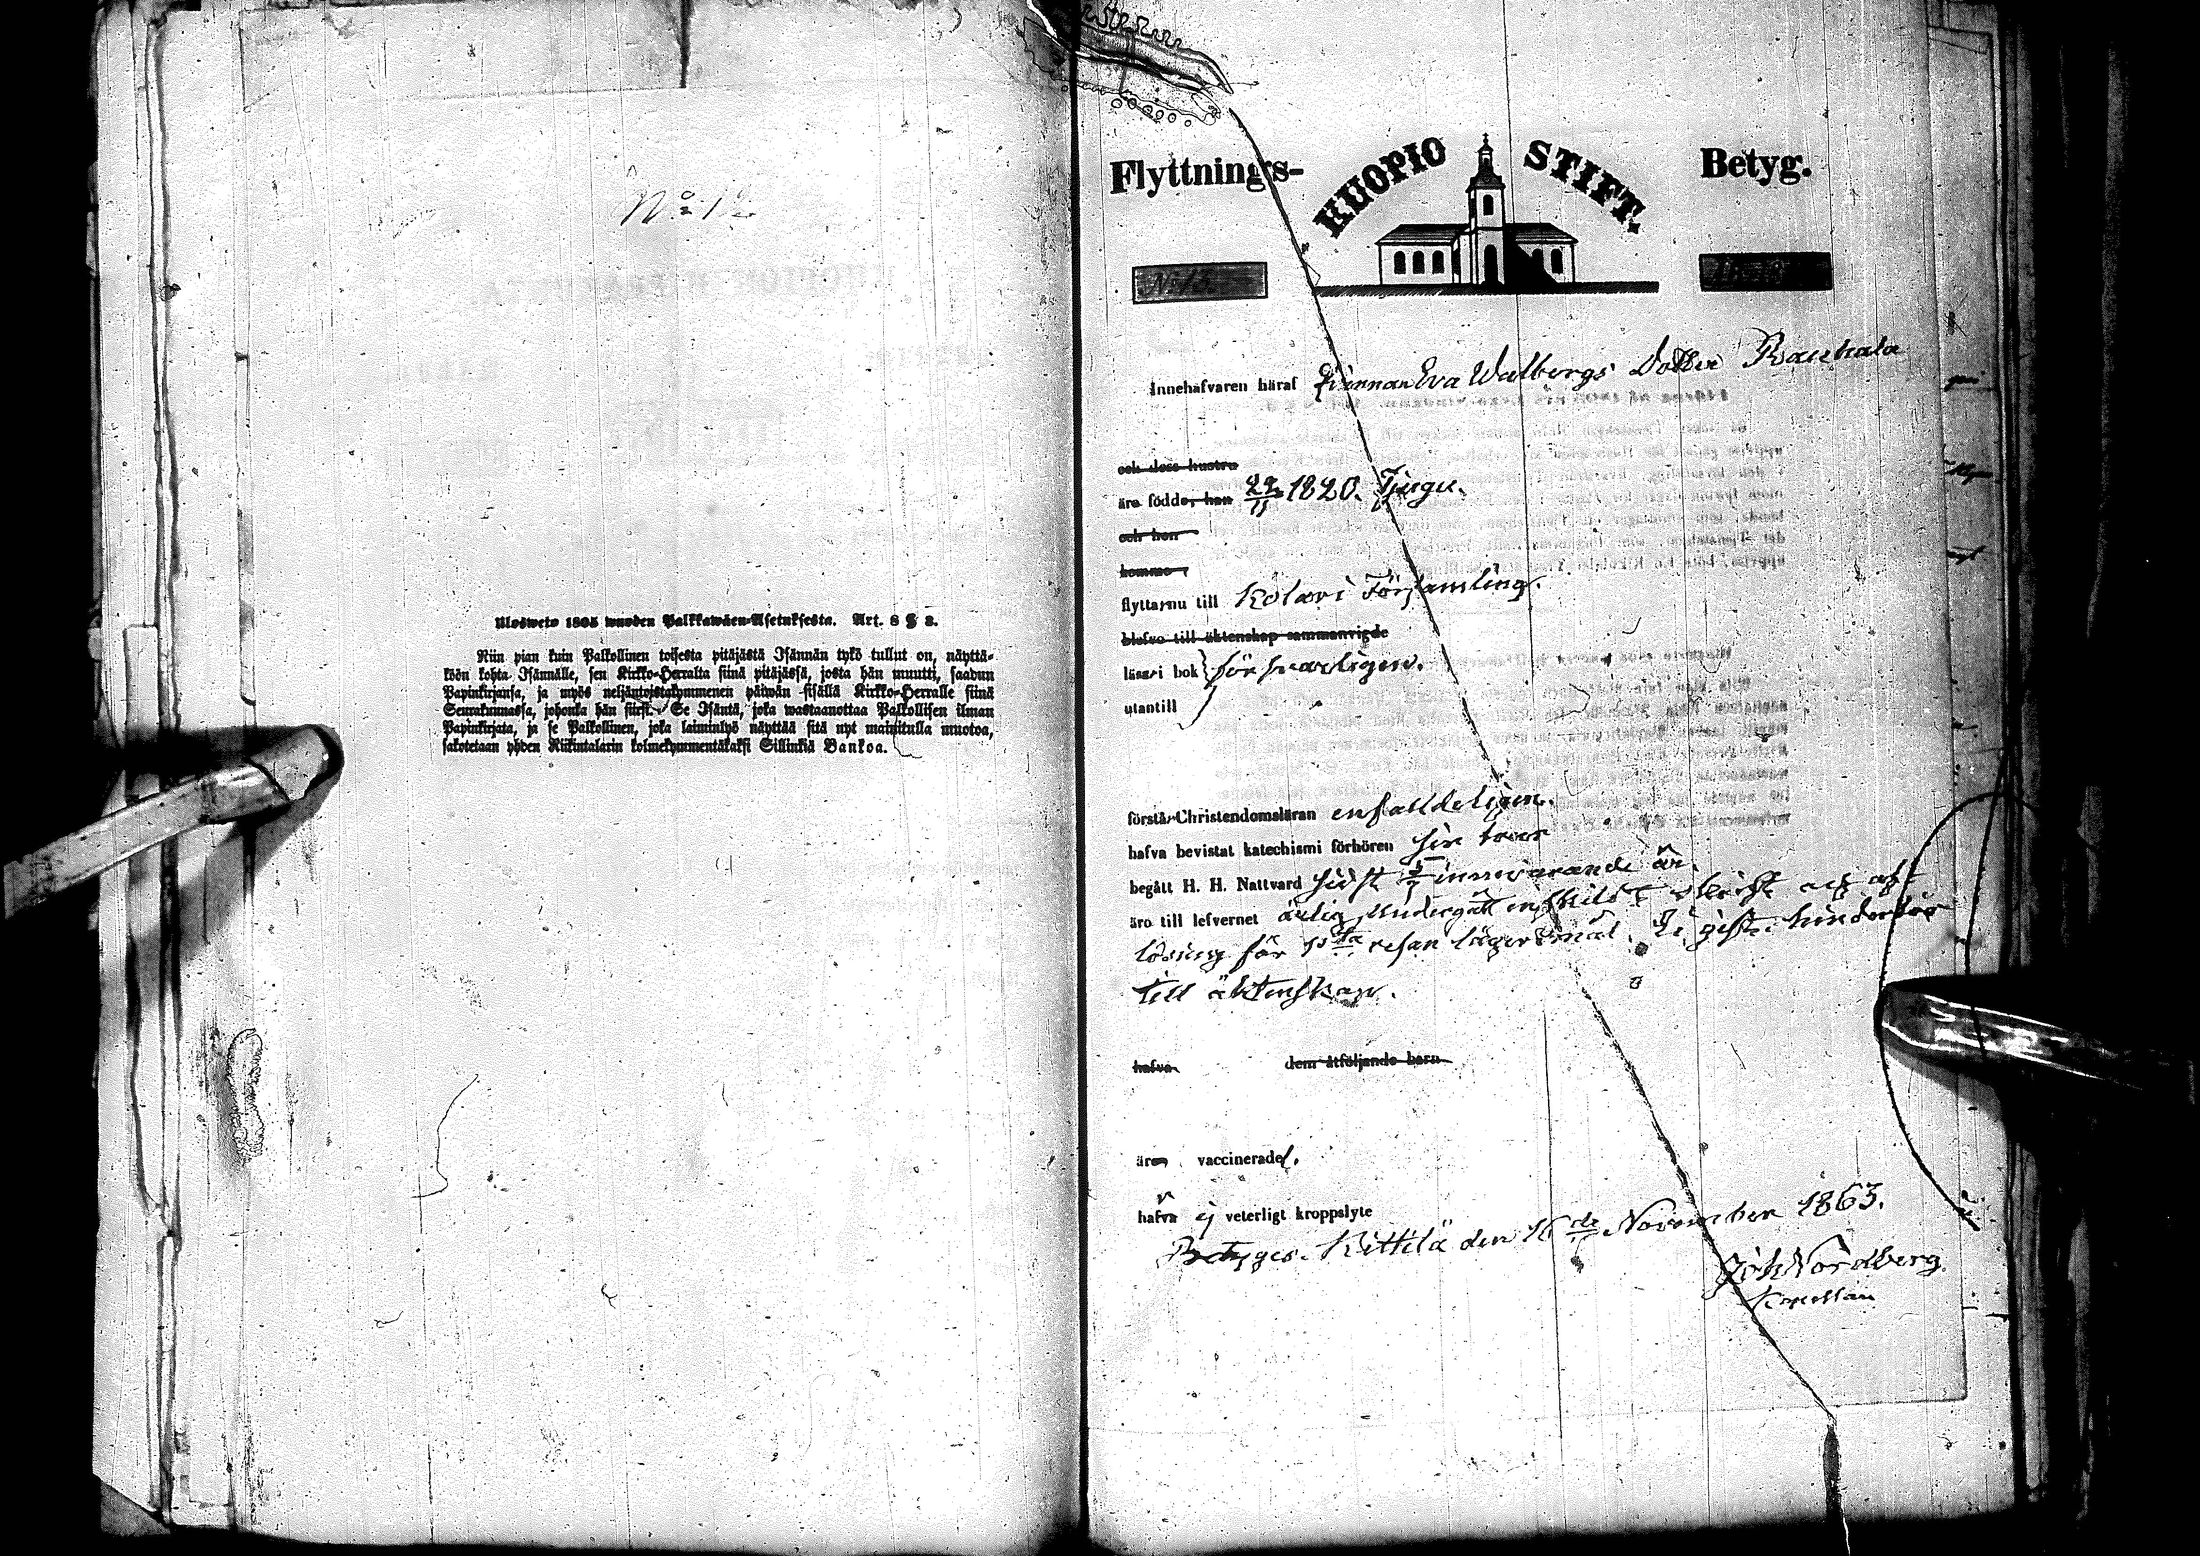 No 12
Ulosweto 1805 wuoden Palkkawäen-Asetuksesta. Art. 8 § 3.
Niin pian kuin Palkollinen toisesta pitäjästä Isännän tykö tullut on, näyttä-
köön kohta Isännälle, sen Kirkko-Herralta siinä pitäjässä, josta hän muutti, saadun
Papinkirjansa, ja myös neljäntoistakymmenen päiwän sisällä Kirkko-Herralle siinä
Seurakunnassa, johonka hän siirsi. Se Isäntä, joka wastaanottaa Palkollisen ilman
Papinkirjata, ja se Palkollinen, joka laiminlyö näyttää sitä nyt mainitulla muotoa,
sakotetaan yhden Riikintalarin kolmekymmentäkaksi Sillinkiä Bankoa.
Flyttnings- KUOPIO STIFT. Betyg.
No 13.
Innehafvaren häraf Qvinnan Eva Walbergs Dotter Rauhala
och dess hustru
äro födde, han 22/11 1820. Tjugu.
och hon
komme
flyttarnu till Kolari Församling.
blefvo till äktenskap sammanvigde
läser i bok försvarligen.
utantill
förstår Christendomsläran enfalldeligen.
hafva bevistat katechismi förhören
begått H. H. Nattvard sidst innevarande år.
äro till lefvernet ärlig, Undergått enskildt skrift och af-
lösning för 1sta resan lägersmål. Ej gift. hinderlös
till äktenskap.
hafva dem åtföljande barn
äro vaccinerade.
hafva ej veterligt kroppslyte
Betygas. Kittilä den 16de November 1863.
Joh Nordberg.
Kapellan